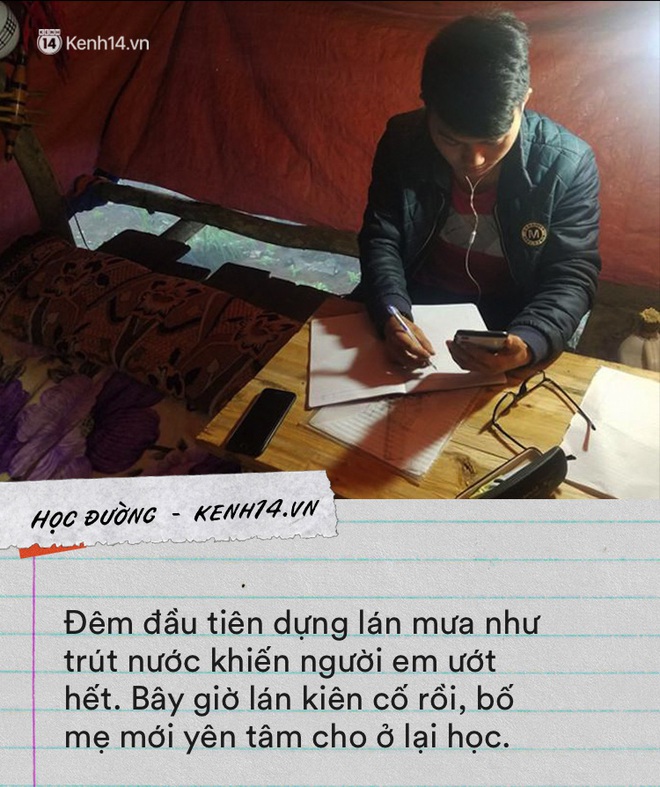 14 Kenh14.vn
M
HỌC ĐƯỜNG - KENH14.VN
Đêm đầu tiên dựng lán mưa như
trút nước khiến người em ướt
hết. Bây giờ lán kiên cố rồi, bố
mẹ mới yên tâm cho ở lại học.